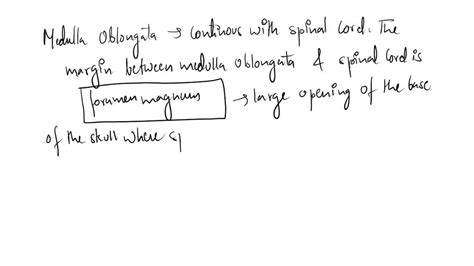 Medulla Oblongata → continous with spinal cord. The
margin between medulla oblongata & spinal cord is
foramen magnum → large opening of the base
of the skull where sp